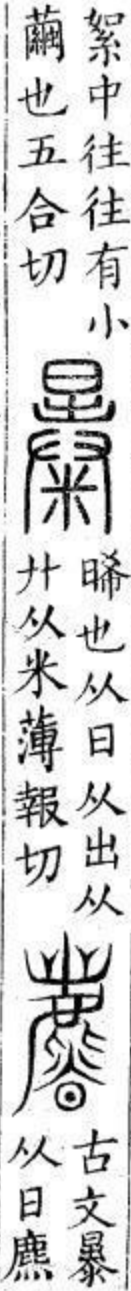 絮中往往有小
繭也五合切
㬥
晞也从日从出从
廾从米薄報切
𣋴
古文暴
从日麃